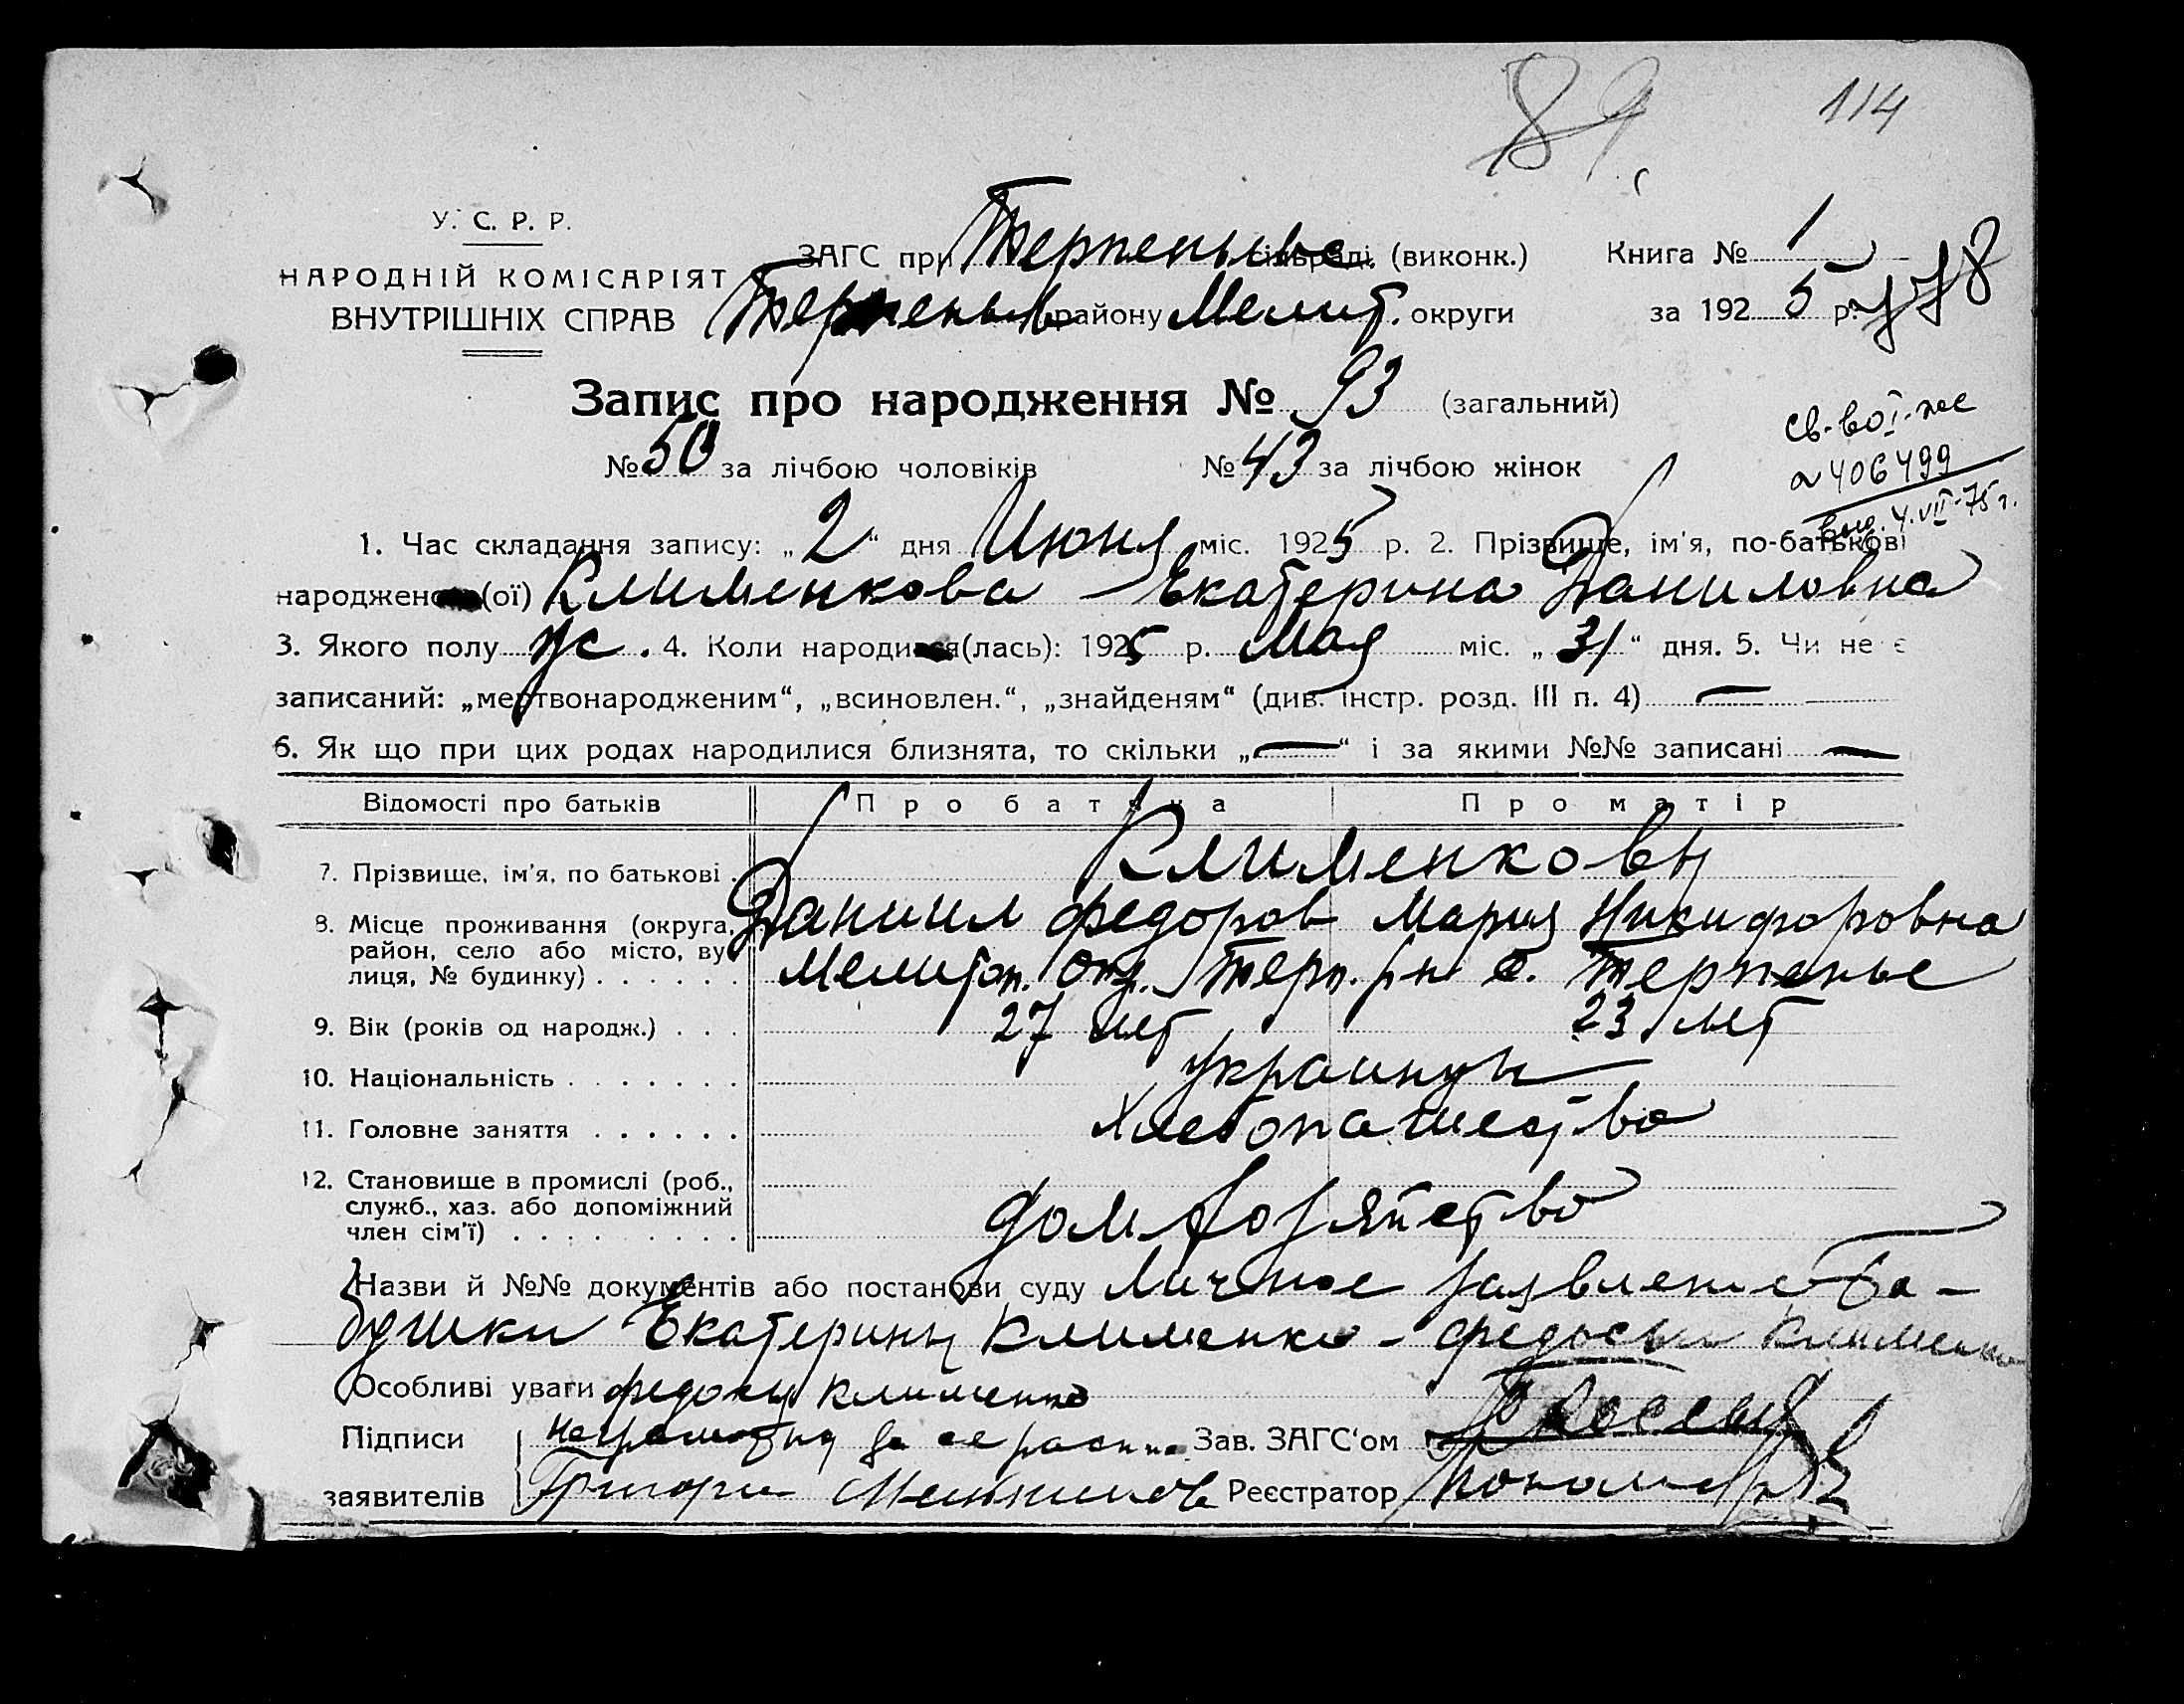 89
114
У. С. Р. Р.
НАРОДНІЙ КОМІСАРІЯТ
ВНУТРІШНІХ СПРАВ
ЗАГС при Терпенье сільраді (виконк.)
Книга № 1
Терпеньев району Мелит. округи
за 1925 р. 778
Запис про народження № 93 (загальний)
№ 50 за лічбою чоловіків № 43 за лічбою жінок
св-во I-
406499
выд. 4.VII-75 г.
1. Час складання запису: „2“ дня Июня міс. 1925 р. 2. Прізвище, ім'я, по-батькові
народжен (ої) Клименкова Екатерина Даниловна
3. Якого полу ж. 4. Коли народи (лась): 1925 р. Мая міс. „31“ дня. 5. Чи не є
записаний: „мертвонародженим“, „всиновлен.“, „знайденям“ (див. інстр. розд. III п. 4) —
6. Як що при цих родах народилися близнята, то скільки „—“ і за якими №№ записані —
Відомості про батьків
Про батька
Про матір
7. Прізвище, ім'я, по батькові .
Клименковы
Даниил Федоров Мария Никифоровна
8. Місце проживання (округа,
район, село або місто, ву
лиця, № будинку) . . . . . .
Мелитоп. Окр. Терп. р-н с. Терпенье
9. Вік (років од народж.) . . .
27 лет 23 лет
10. Національність . . . . . . .
Украинцы
11. Головне заняття . . . . . .
Хлебопашество
12. Становище в промислі (роб.,
служб., хаз. або допоміжний
член сім'ї) . . . . . . . . .
домхозяйство
Назви й №№ документів або постанови суду Личное заявление ба-
бушки Екатерины Клименко - Федосьи Клименко
Особливі уваги Федосья Клименко
Підписи неграмотна за ее распис. Зав. ЗАГС'ом
заявителів Григори Реєстратор